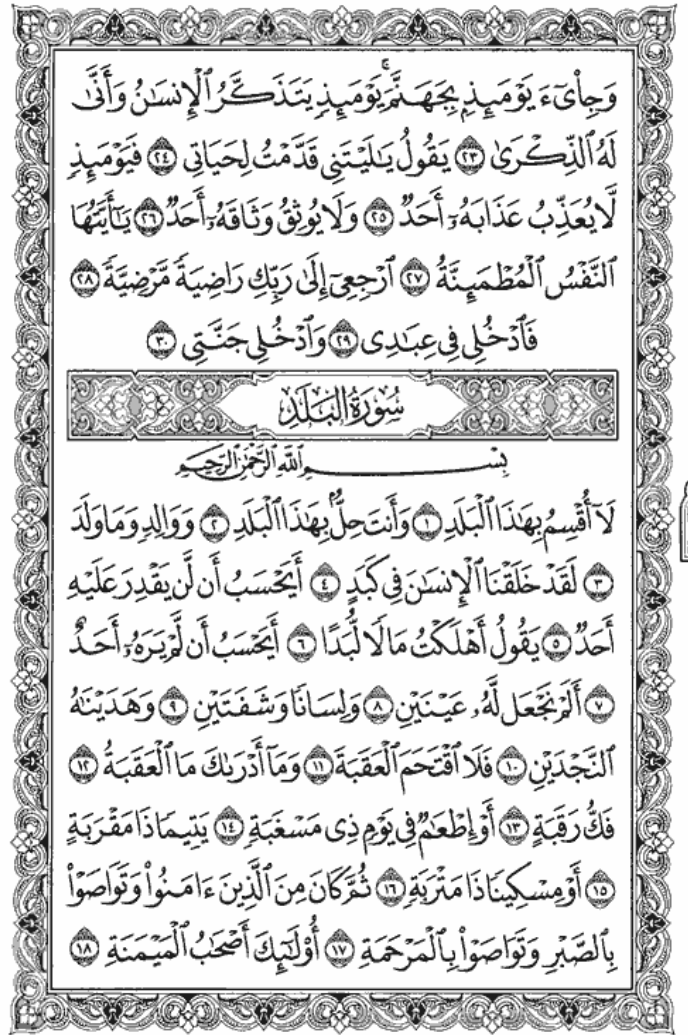 وَجِاْىٓءَ يَوْمَئِذِۭ بِجَهَنَّمَ ۚ يَوْمَئِذٍ يَتَذَكَّرُ ٱلْإِنسَٰنُ وَأَنَّىٰ
لَهُ ٱلذِّكْرَىٰ ٢٣ يَقُولُ يَٰلَيْتَنِى قَدَّمْتُ لِحَيَاتِى ٢٤ فَيَوْمَئِذٍ
لَّا يُعَذِّبُ عَذَابَهُۥٓ أَحَدٌ ٢٥ وَلَا يُوثِقُ وَثَاقَهُۥٓ أَحَدٌ ٢٦ يَٰٓأَيَّتُهَا
ٱلنَّفْسُ ٱلْمُطْمَئِنَّةُ ٢٧ ٱرْجِعِىٓ إِلَىٰ رَبِّكِ رَاضِيَةً مَّرْضِيَّةً ٢٨
فَٱدْخُلِى فِى عِبَٰدِى ٢٩ وَٱدْخُلِى جَنَّتِى ٣٠
سُورَةُ البَلَدِ
بِسْمِ ٱللَّهِ ٱلرَّحْمَٰنِ ٱلرَّحِيمِ
لَآ أُقْسِمُ بِهَٰذَا ٱلْبَلَدِ ١ وَأَنتَ حِلٌّۢ بِهَٰذَا ٱلْبَلَدِ ٢ وَوَالِدٍ وَمَا وَلَدَ
٣ لَقَدْ خَلَقْنَا ٱلْإِنسَٰنَ فِى كَبَدٍ ٤ أَيَحْسَبُ أَن لَّن يَقْدِرَ عَلَيْهِ
أَحَدٌ ٥ يَقُولُ أَهْلَكْتُ مَالًا لُّبَدًا ٦ أَيَحْسَبُ أَن لَّمْ يَرَهُۥٓ أَحَدٌ
٧ أَلَمْ نَجْعَل لَّهُۥ عَيْنَيْنِ ٨ وَلِسَانًا وَشَفَتَيْنِ ٩ وَهَدَيْنَٰهُ
ٱلنَّجْدَيْنِ ١٠ فَلَا ٱقْتَحَمَ ٱلْعَقَبَةَ ١١ وَمَآ أَدْرَىٰكَ مَا ٱلْعَقَبَةُ ١٢
فَكُّ رَقَبَةٍ ١٣ أَوْ إِطْعَٰمٌ فِى يَوْمٍ ذِى مَسْغَبَةٍ ١٤ يَتِيمًا ذَا مَقْرَبَةٍ
١٥ أَوْ مِسْكِينًا ذَا مَتْرَبَةٍ ١٦ ثُمَّ كَانَ مِنَ ٱلَّذِينَ ءَامَنُوا۟ وَتَوَاصَوْا۟
بِٱلصَّبْرِ وَتَوَاصَوْا۟ بِٱلْمَرْحَمَةِ ١٧ أُو۟لَٰٓئِكَ أَصْحَٰبُ ٱلْمَيْمَنَةِ ١٨